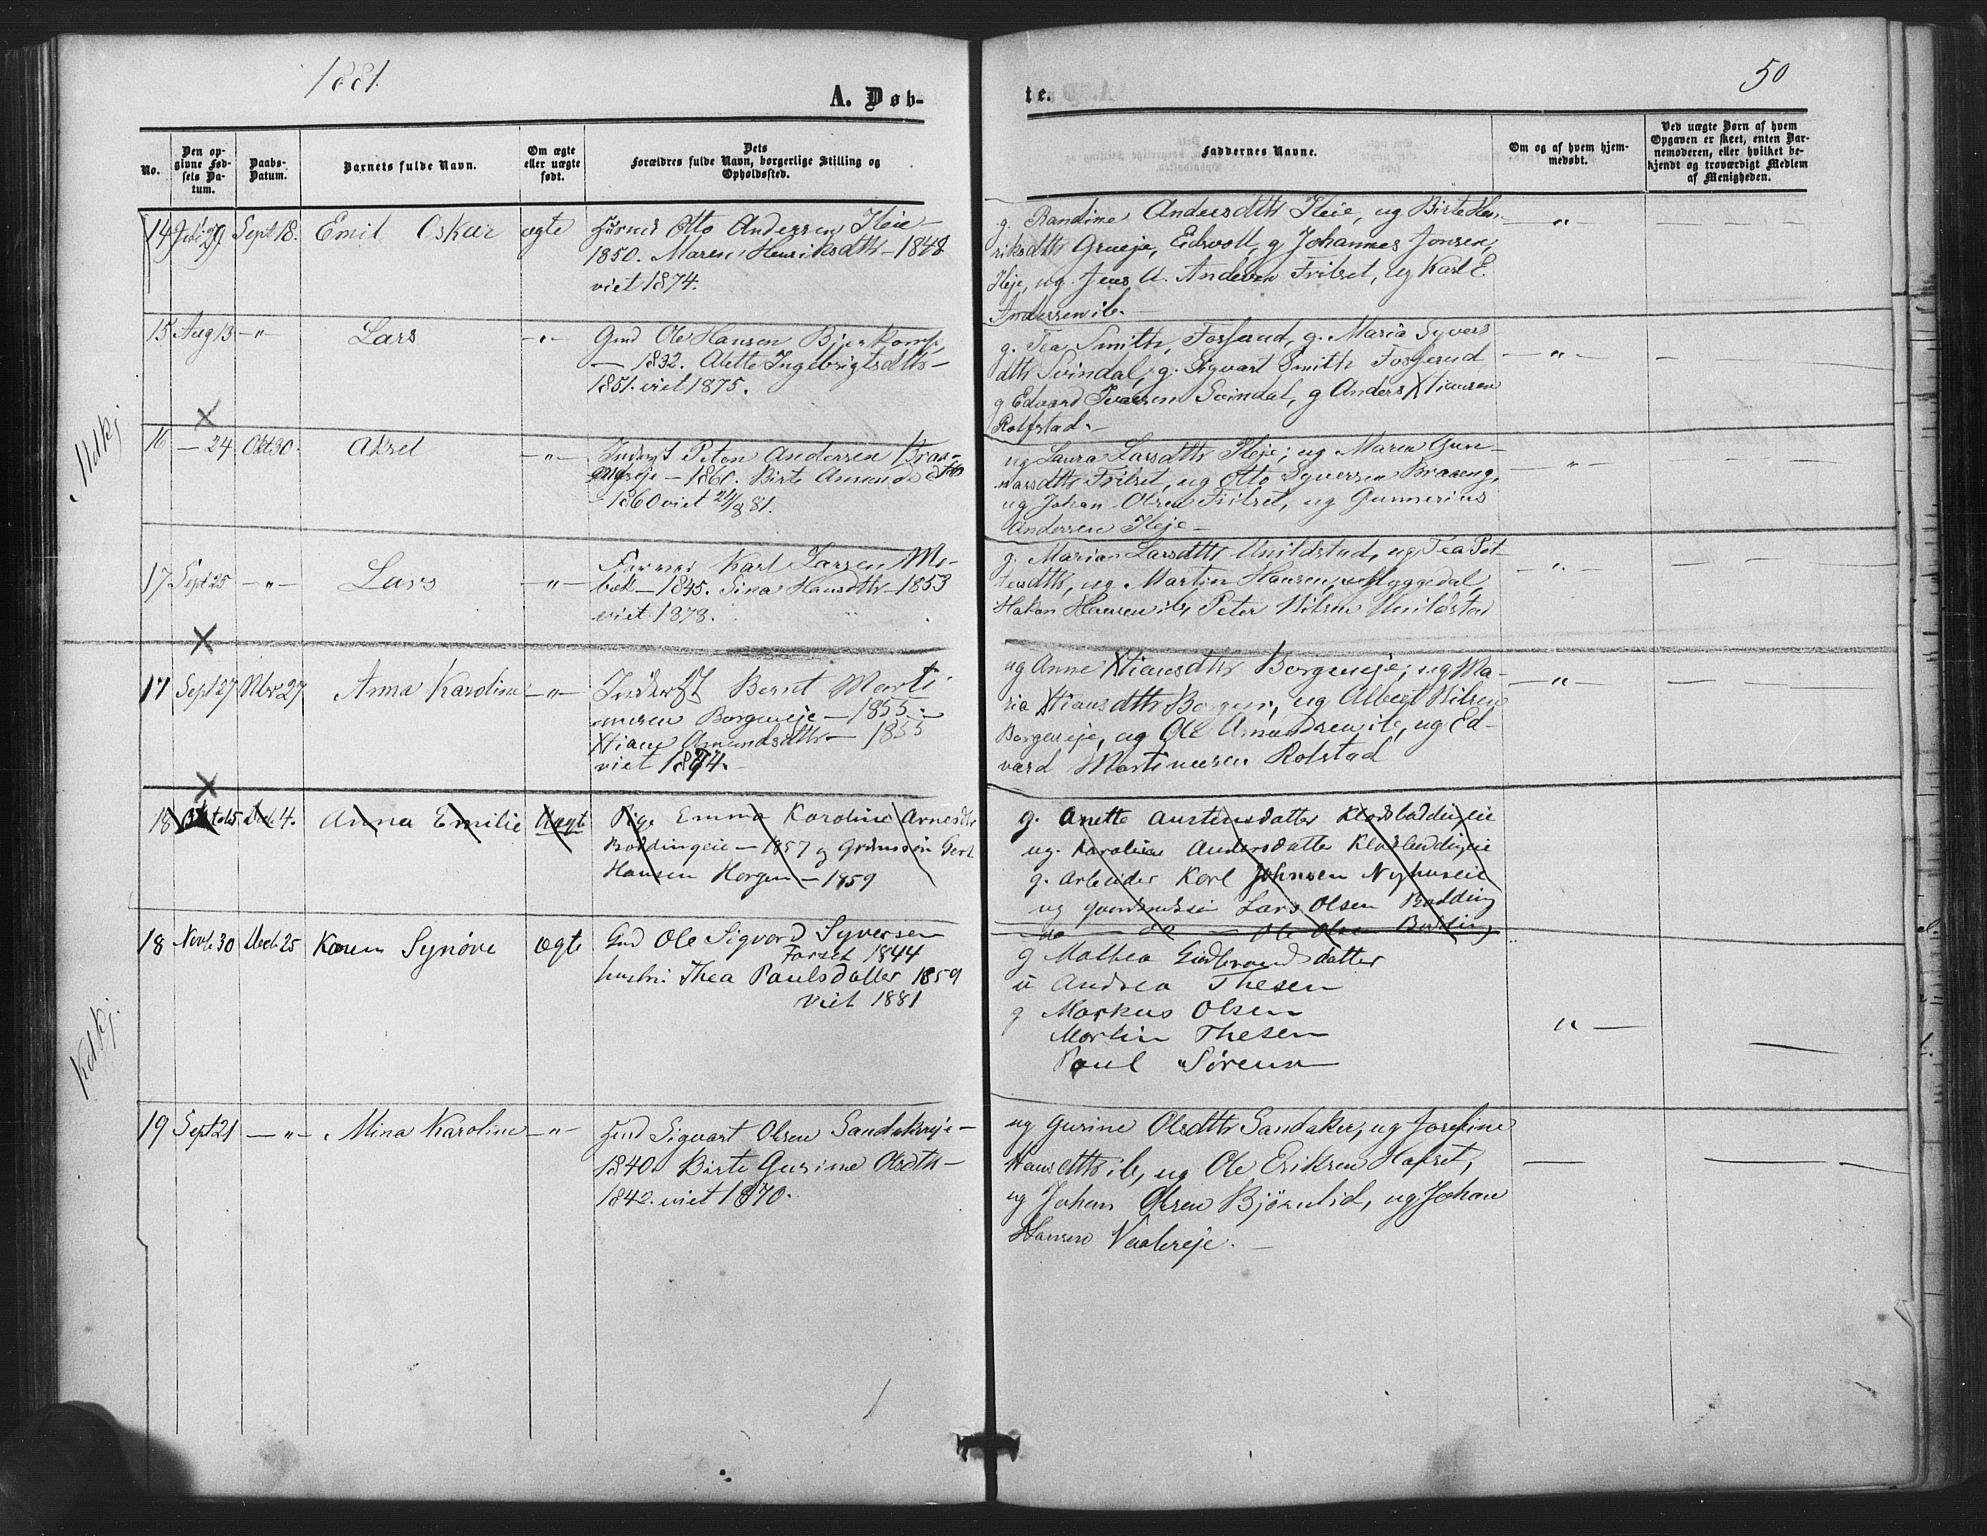 1881.
A. Døb-
te.
50
No.
Den op-
givne Fød-
sels Da-
tum.
Daabs-
Datum.
Barnets fulde Navn.
Om ægte
eller uægte
født.
Dets
Forældres fulde Navn, borgerlige Stilling og
Opholdssted.
Faddernes Navne.
Om og af hvem hjem-
medøbt.
Ved uægte Børn af hvem
Opgaven er skeet, enten Bar-
nemoderen, eller hvilket be-
kjendt og troværdigt Medlem
af Menigheden.
14 29 Sept 18. Emil Oskar ægte Otto Andersen Heie -
1850. Maren Henriksdtr - 1848
viet 1874.
g. Randine Andersdtr Heie, ug Birte Hen-
riksdtr Grueje, Eidsvoll, g Johannes Jonsen,
Heje, ug. Jens A. Andersen Frilset, ug Karl E.
Andersen ib. -
15 Aug 13 - " - Lars - " - Gmd Ole Hansen
- 1832. Anette Ingebrigtsdtr -
1851. viet 1875.
g. Tea Smith, Fosserud, g. Maria Syvers
dtr Svindal, g. Sigvart Smith Fosserud
g Edvard Iversen Svindal, g Anders Xtiansen
Rolfstad. -
16 - 24 Okt 30. Aksel - " - Inderst Peter Andersen Braa-
- 1860. Birte Amundsdtr
1860 viet 24/8 81.
ug Laura Larsdtr Heje, ug Maren Gun-
narsdtr Frilset, ug Otto Syversen Braaeng,
ug Johan Olsen Frilset, ug Gunnerius
Andersen Heje -
17 Sept 25 - " - Lars - " - Karl Larsen Mo-
- 1845. Sina Hansdtr - 1853
viet 1878.
g. Maria Larsdtr Unildstad, ug Tea Pet-
tersdtr, ug Martin Hansen, Myggedal,
Hakon Hansen ib, Peter Nilsen Unildstad
17 Sept 27 Nbr 27 Anna Karoline - " - Inderst Bernt Marti
nusen Borgeneje - 1855.
Xtiane Amundsdtr - 1855
viet 1874. -
ug Anne Xtiansdtr Borgeneje, ug Ma-
ria Xtiansdtr Borgen, ug Albert Nilsen
Borgeneje, ug Ole Amundsen ib, ug Ed-
vard Martinusen Rolstad
18 Decb. 4. Anna Emilie Uægt Pige Emma Karoline Arnesdtr
Boddingeie - 1857 og Gert
Hansen Horgen - 1859
g. Anette Austensdatter Klodsboddingeie
ug. Karoline Andersdatter Klodsboddingeie
g. Arbeider Karl Johnsen Nyhuseie
ug Lars Olsen Bodding
do - do - Ole Olsen Bodding
18 Novb. 30 Decb. 25 Karen Synøve ægte Gmd Ole Sigvard Syversen
Forset 1844
hustru Thea Paulsdatter 1859
viet 1881
g Mathea Gudbrandsdatter
u Andrea Thesen
g Markus Olsen
Martin Thesen
Paul Sørensen
19 Sept 21 - " - Mina Karoline - " - Sigvart Olsen Sandakereje -
1840. Birte Gurine Olsdtr -
1842. viet 1870.
ug Gurine Olsdtr Sandaker, ug Josefine
Hansdtr ib, ug Ole Eriksen Hofset,
ug Johan Olsen Bjørnlid, ug Johan
Hansen Vaalereje. -